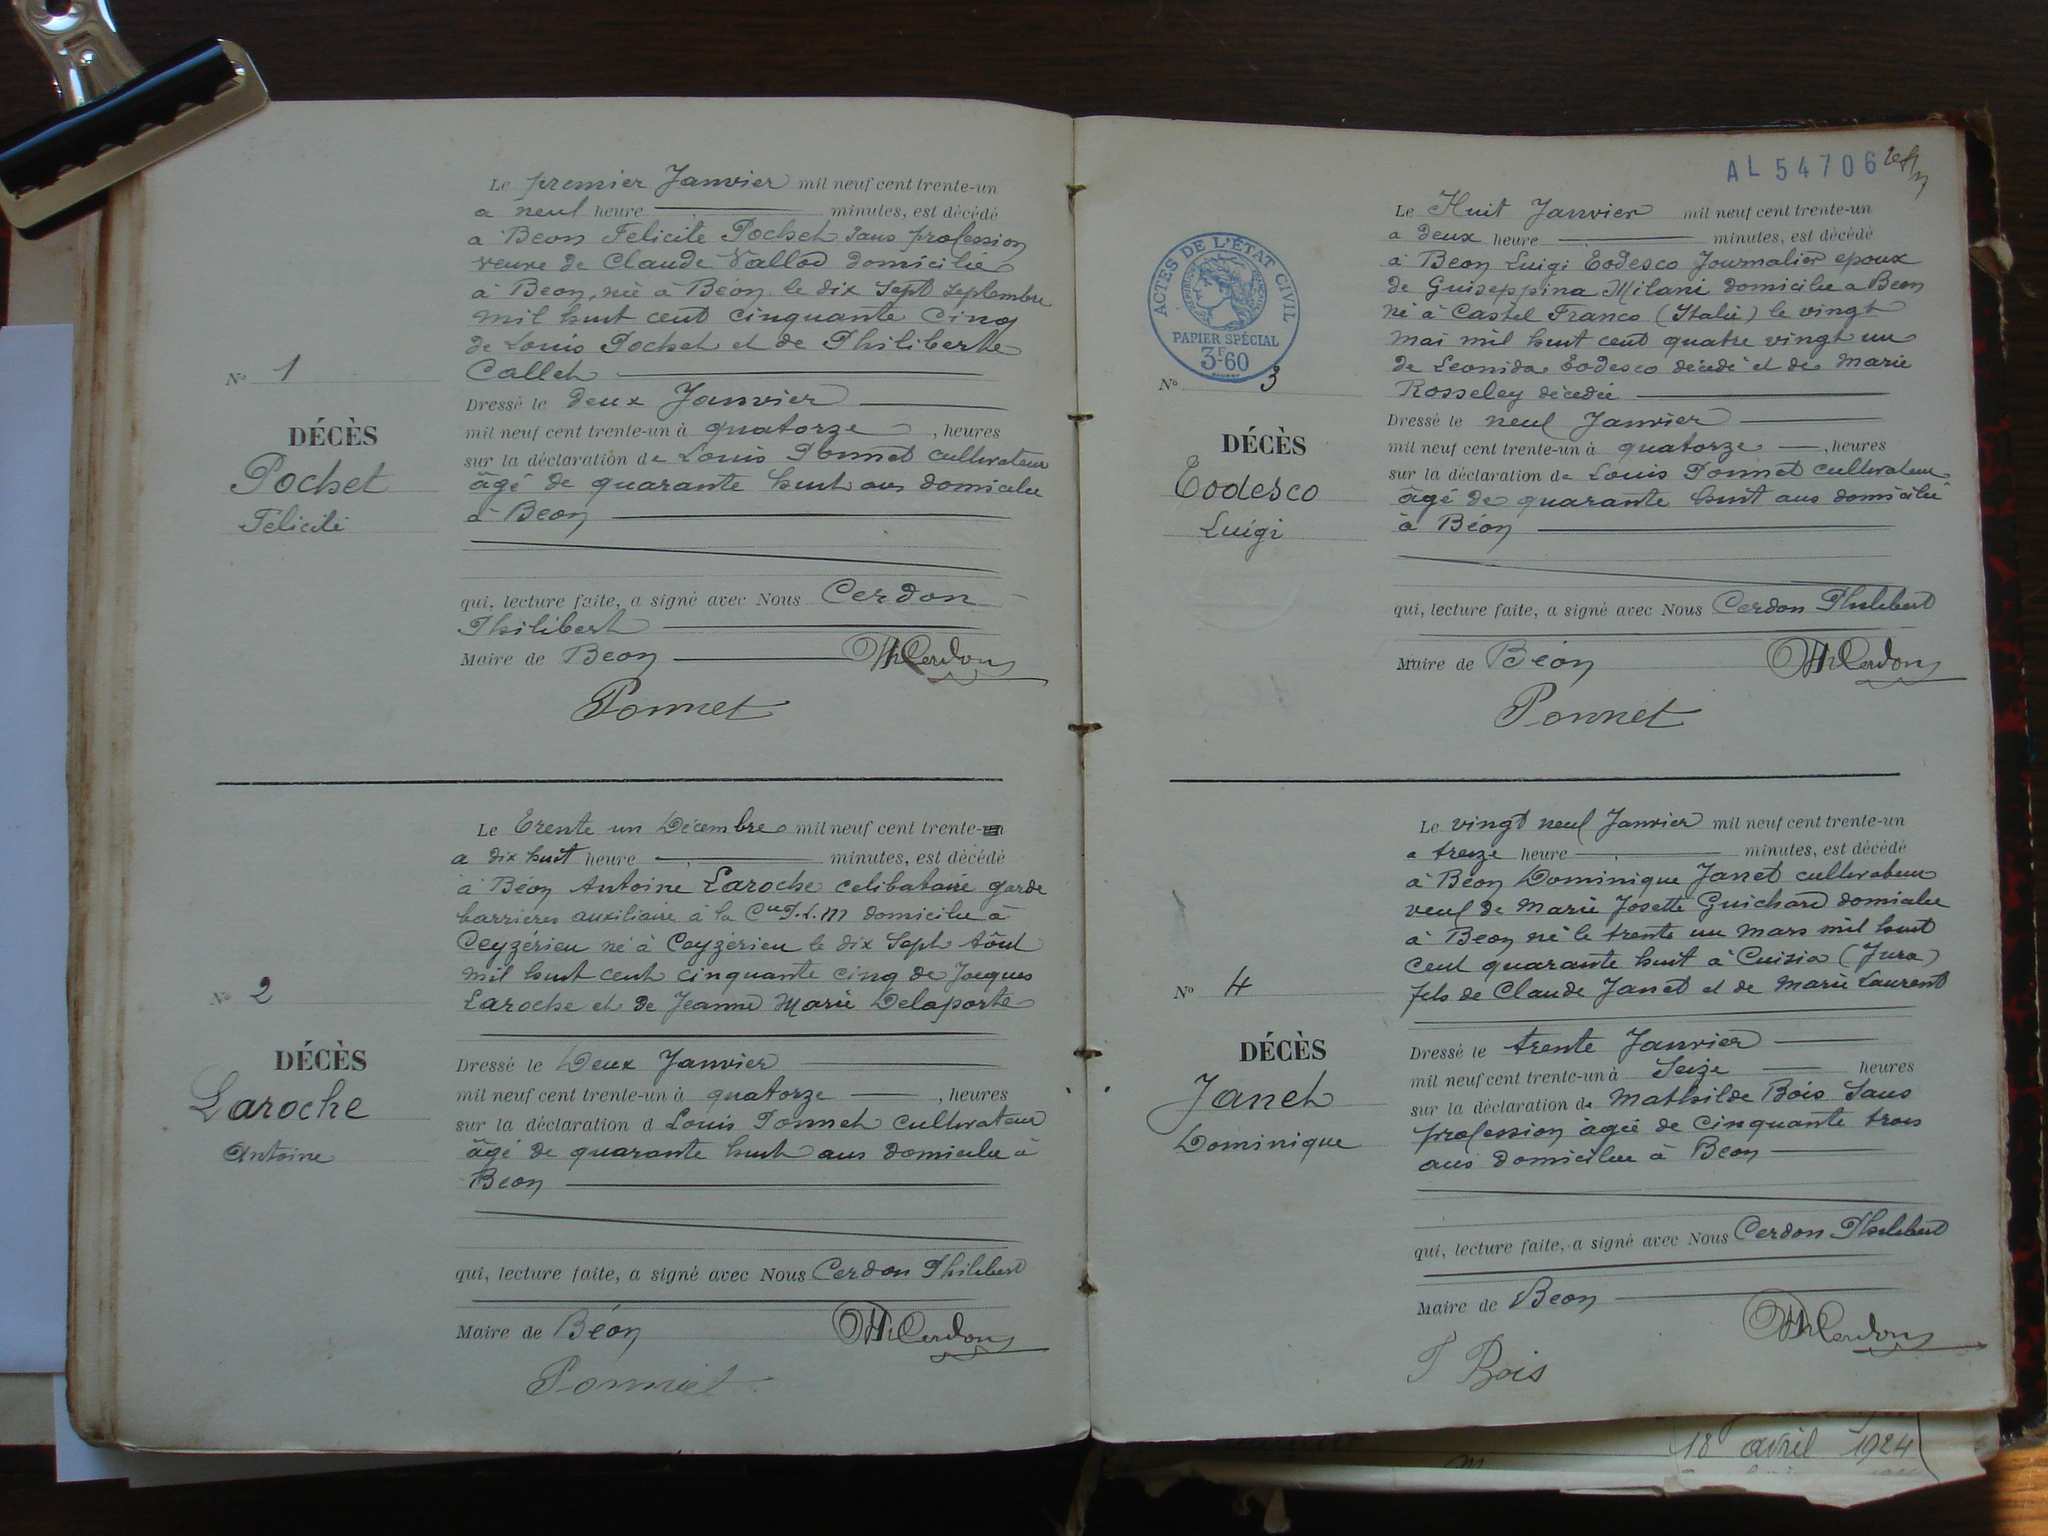 Le premier Janvier mil neuf cent trente-un
a neuf heure minutes, est décédé
a Béon Felicite Pochet sans profession
veuve de Claude Vallod domicilié
à Béon, née à Béon le dix sept septembre
mil huit cent cinquante cinq
de Louis Pochet et de Philiberte
Callet
N° 1
Dressé le deux Janvier
DÉCÈS
mil neuf cent trente-un à quatorze, heures
Pochet
sur la déclaration de Louis Ponnet cultivateur
âgé de quarante huit ans domicilié
Félicité
à Béon
qui, lecture faite, a signé avec Nous Cerdon
Philibert
Maire de Béon PhCerdon
Ponnet
Le Trente un Décembre mil neuf cent trente-
a dix huit heure minutes, est décédé
à Béon Antoine Laroche celibataire garde
barrières auxiliaire à la Cie P.L.M domicilié à
Ceyzérieu né à Ceyzérieu le dix sept Aôut
mil huit cent cinquante cinq de Jacques
N° 2
Laroche et de Jeanne Marie Delaporte
DÉCÈS
Dressé le Deux Janvier
Laroche
mil neuf cent trente-un à quatorze, heures
sur la déclaration d Louis Ponnet cultivateur
Antoine
âgé de quarante huit ans domicilié à
Béon
qui, lecture faite, a signé avec Nous Cerdon Philibert
Maire de Béon PhCerdon
Ponnet
AL 54706
ACTES DE L'ÉTAT CIVIL
PAPIER SPÉCIAL
3F60
Le Huit Janvier mil neuf cent trente-un
a deux heure minutes, est décédé
à Béon Luigi Todesco Journalier epoux
de Guiseppina Milani domicilié a Béon
né à Castel Franco (Italie) le vingt
mai mil huit cent quatre vingt un
de Leonida Todesco décédé et de Marie
N° 3
Rosseley décédée
Dressé le neuf Janvier
DÉCÈS
mil neuf cent trente-un à quatorze, heures
Todesco
sur la déclaration de Louis Ponnet cultivateur
âgé de quarante huit ans domicilié
Luigi
à Béon
qui, lecture faite, a signé avec Nous Cerdon Philibert
Maire de Béon PhCerdon
Ponnet
Le vingt neuf Janvier mil neuf cent trente-un
a treize heure minutes, est décédé
à Béon Dominique Janet cultivateur
veuf de Marie Josette Guichard domicilié
à Béon né le trente un mars mil huit
cent quarante huit à Cuisia (Jura)
N° 4
fils de Claude Janet et de Marie Laurent
DÉCÈS
Dressé le trente Janvier
mil neuf cent trente-un à Seize heures
Janet
sur la déclaration de Mathilde Bois Sans
Dominique
profession âgée de cinquante trois
ans domiciliée à Béon
qui, lecture faite, a signé avec Nous Cerdon Philibert
Maire de Béon PhCerdon
Bois
18 avril 1924